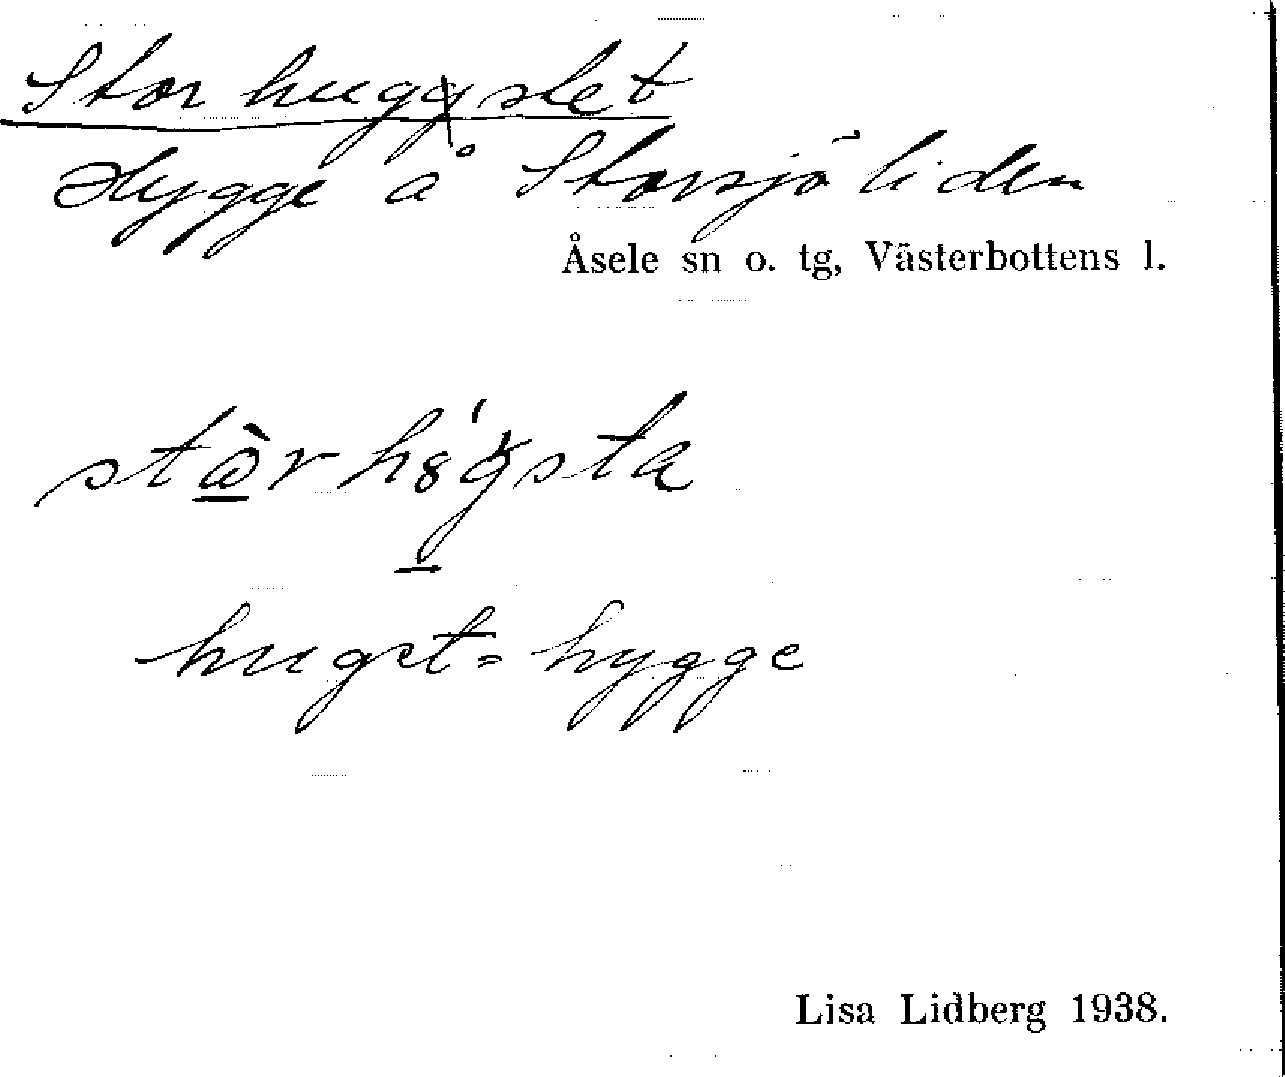 Storhuggstet
Hygge å Storsjöliden
Åsele sn o. tg, Västerbottens l.
hugst = hygge
Lisa Lidberg 1938.